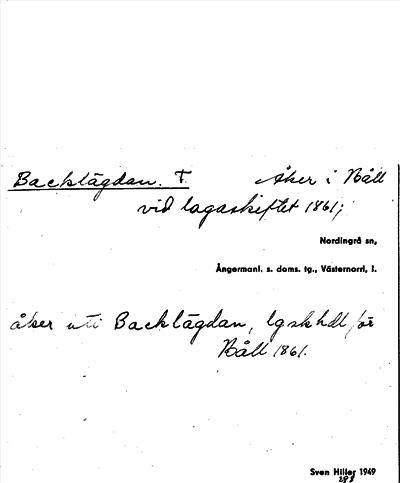 Backlägdan. T. Åker i Håll
vid lagaskiftet 1861;
Nordingrå sn,
Ångermanl. s. doms. tg., Västernorrl. l.
åker uti Backlägdan, lgskhdl för
Håll 1861.
Sven Hiller 1949